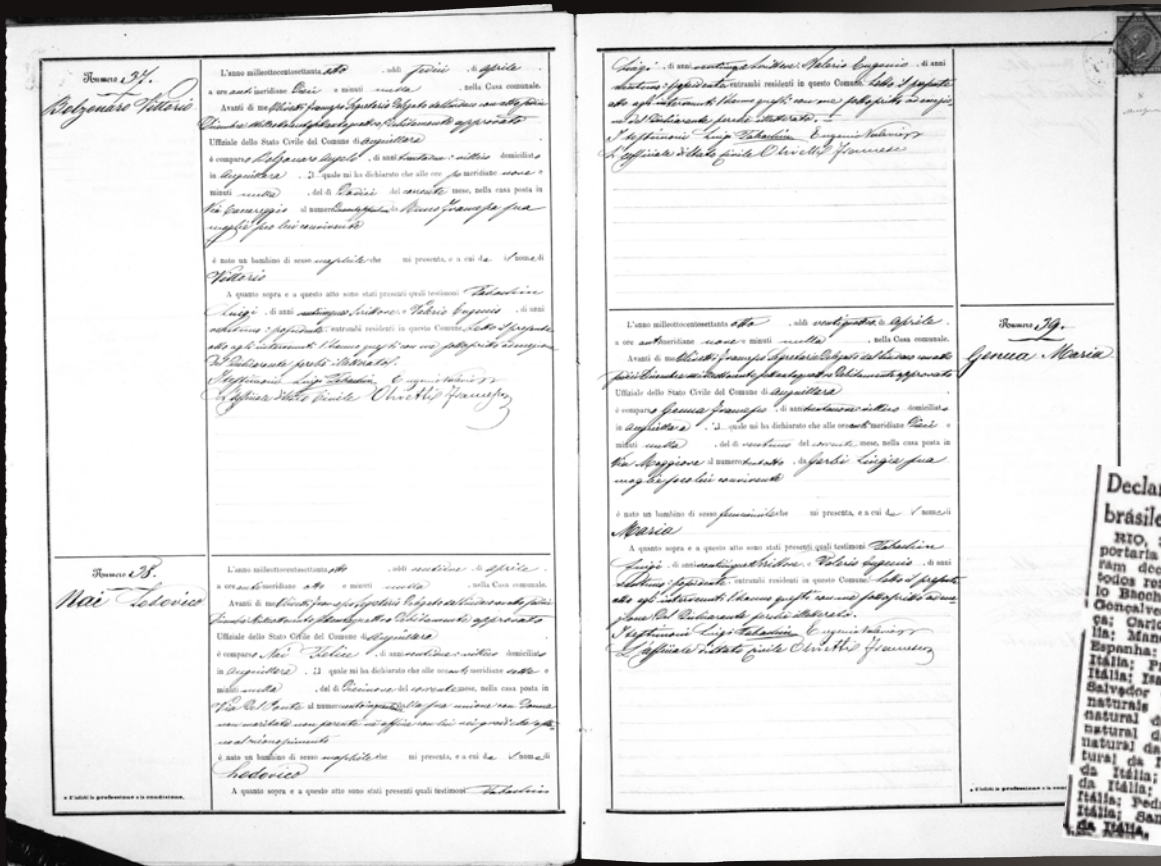 Numero 37.
Bolzonaro Vittorio
L'anno milleottocentosettanta otto , addì sedici , di aprile ,
a ore antimeridiane Dieci e minuti nulla , nella Casa comunale.
Avanti di me Olivetti Francesco Segretario Delegato dal Sindaco con atto sedici
Dicembre milleottocentosettantaquattro Debitamente approvato
Uffiziale dello Stato Civile del Comune di Anguillara
è comparso Bolzonaro Angelo , di anni villico domiciliato
in Anguillara , il quale mi ha dichiarato che alle ore pomeridiane nove e
minuti nulla , del dì Dodici del corrente mese, nella casa posta in
Via Canareggio al numero da Bruno Francesca sua
moglie seco lui convivente
è nato un bambino di sesso maschile che mi presenta, e a cui dà il nome di
Vittorio
A quanto sopra e a questo atto sono stati presenti quali testimoni Tabachin
Luigi , di anni venticinque Scrittore e Valerio Eugenio , di anni
ventuno possidente, entrambi residenti in questo Comune. Letto il presente
atto agli intervenuti l'hanno questi con me sottoscritto ad eccezione
del Dichiarante perché illetterato.
I testimoni Luigi Tabachin Eugenio Valerio
L'uffiziale di Stato Civile Olivetti Francesco
Numero 38.
Nai Lodovico
L'anno milleottocentosettanta otto , addì ventidue di aprile ,
a ore antimeridiane otto e minuti nulla , nella Casa comunale.
Avanti di me Olivetti Francesco Segretario Delegato dal Sindaco con atto sedici
Dicembre milleottocentosettantaquattro Debitamente approvato
Uffiziale dello Stato Civile del Comune di Anguillara
è comparso Nai Felice , di anni ventidue villico domiciliato
in Anguillara , il quale mi ha dichiarato che alle ore antimeridiane sette e
minuti nulla , del dì Diecinove del corrente mese, nella casa posta in
Via Del Ponte al numero dalla sua unione con donna
non maritata non parente né affine con lui nei gradi che
no al riconoscimento
è nato un bambino di sesso maschile che mi presenta, e a cui dà il nome di
Lodovico
A quanto sopra e a questo atto sono stati presenti quali testimoni Tabachin
Luigi , di anni venticinque Scrittore e Valerio Eugenio , di anni
ventuno possidente, entrambi residenti in questo Comune. Letto il presente
atto agli intervenuti l'hanno questi con me sottoscritto ad eccezio-
ne del Dichiarante perché illetterato.
I testimoni Luigi Tabachin Eugenio Valerio
L'uffiziale di Stato Civile Olivetti Francesco
Numero 39.
Genua Maria
L'anno milleottocentosettanta otto , addì ventiquattro, di aprile ,
a ore antimeridiane nove e minuti nulla , nella Casa comunale.
Avanti di me Olivetti Francesco Segretario Delegato dal Sindaco con atto
sedici Dicembre milleottocentosettantaquattro Debitamente approvato
Uffiziale dello Stato Civile del Comune di Anguillara
è comparso Genua Francesco , di anni trentanove villico domiciliato
in Anguillara , il quale mi ha dichiarato che alle ore antimeridiane Dieci e
minuti nulla , del dì ventuno del corrente mese, nella casa posta in
Via Maggiore al numero da Garbi Luigia sua
moglie seco lui convivente
è nato un bambino di sesso femminile che mi presenta, e a cui dà il nome di
Maria
A quanto sopra e a questo atto sono stati presenti quali testimoni Tabachin
Luigi , di anni venticinque Scrittore e Valerio Eugenio , di anni
ventuno possidente, entrambi residenti in questo Comune. Letto il presente
atto agli intervenuti l'hanno questi con me sottoscritto ad ecce-
zione del Dichiarante perché illetterato.
I testimoni Luigi Tabachin Eugenio Valerio
L'uffiziale di Stato Civile Olivetti Francesco
Declar
brasile
RIO,
portaria
ram dec
todos res
lo Bacch
Gonçalve
ça; Carlo
lia; Mano
Espanha;
Itália; Pr
Itália; Isa
Salvador
naturais
natural d
natural d
natural da
tural da I
da Itália;
da Itália;
Itália; Ped
Itália; San
da Itália.